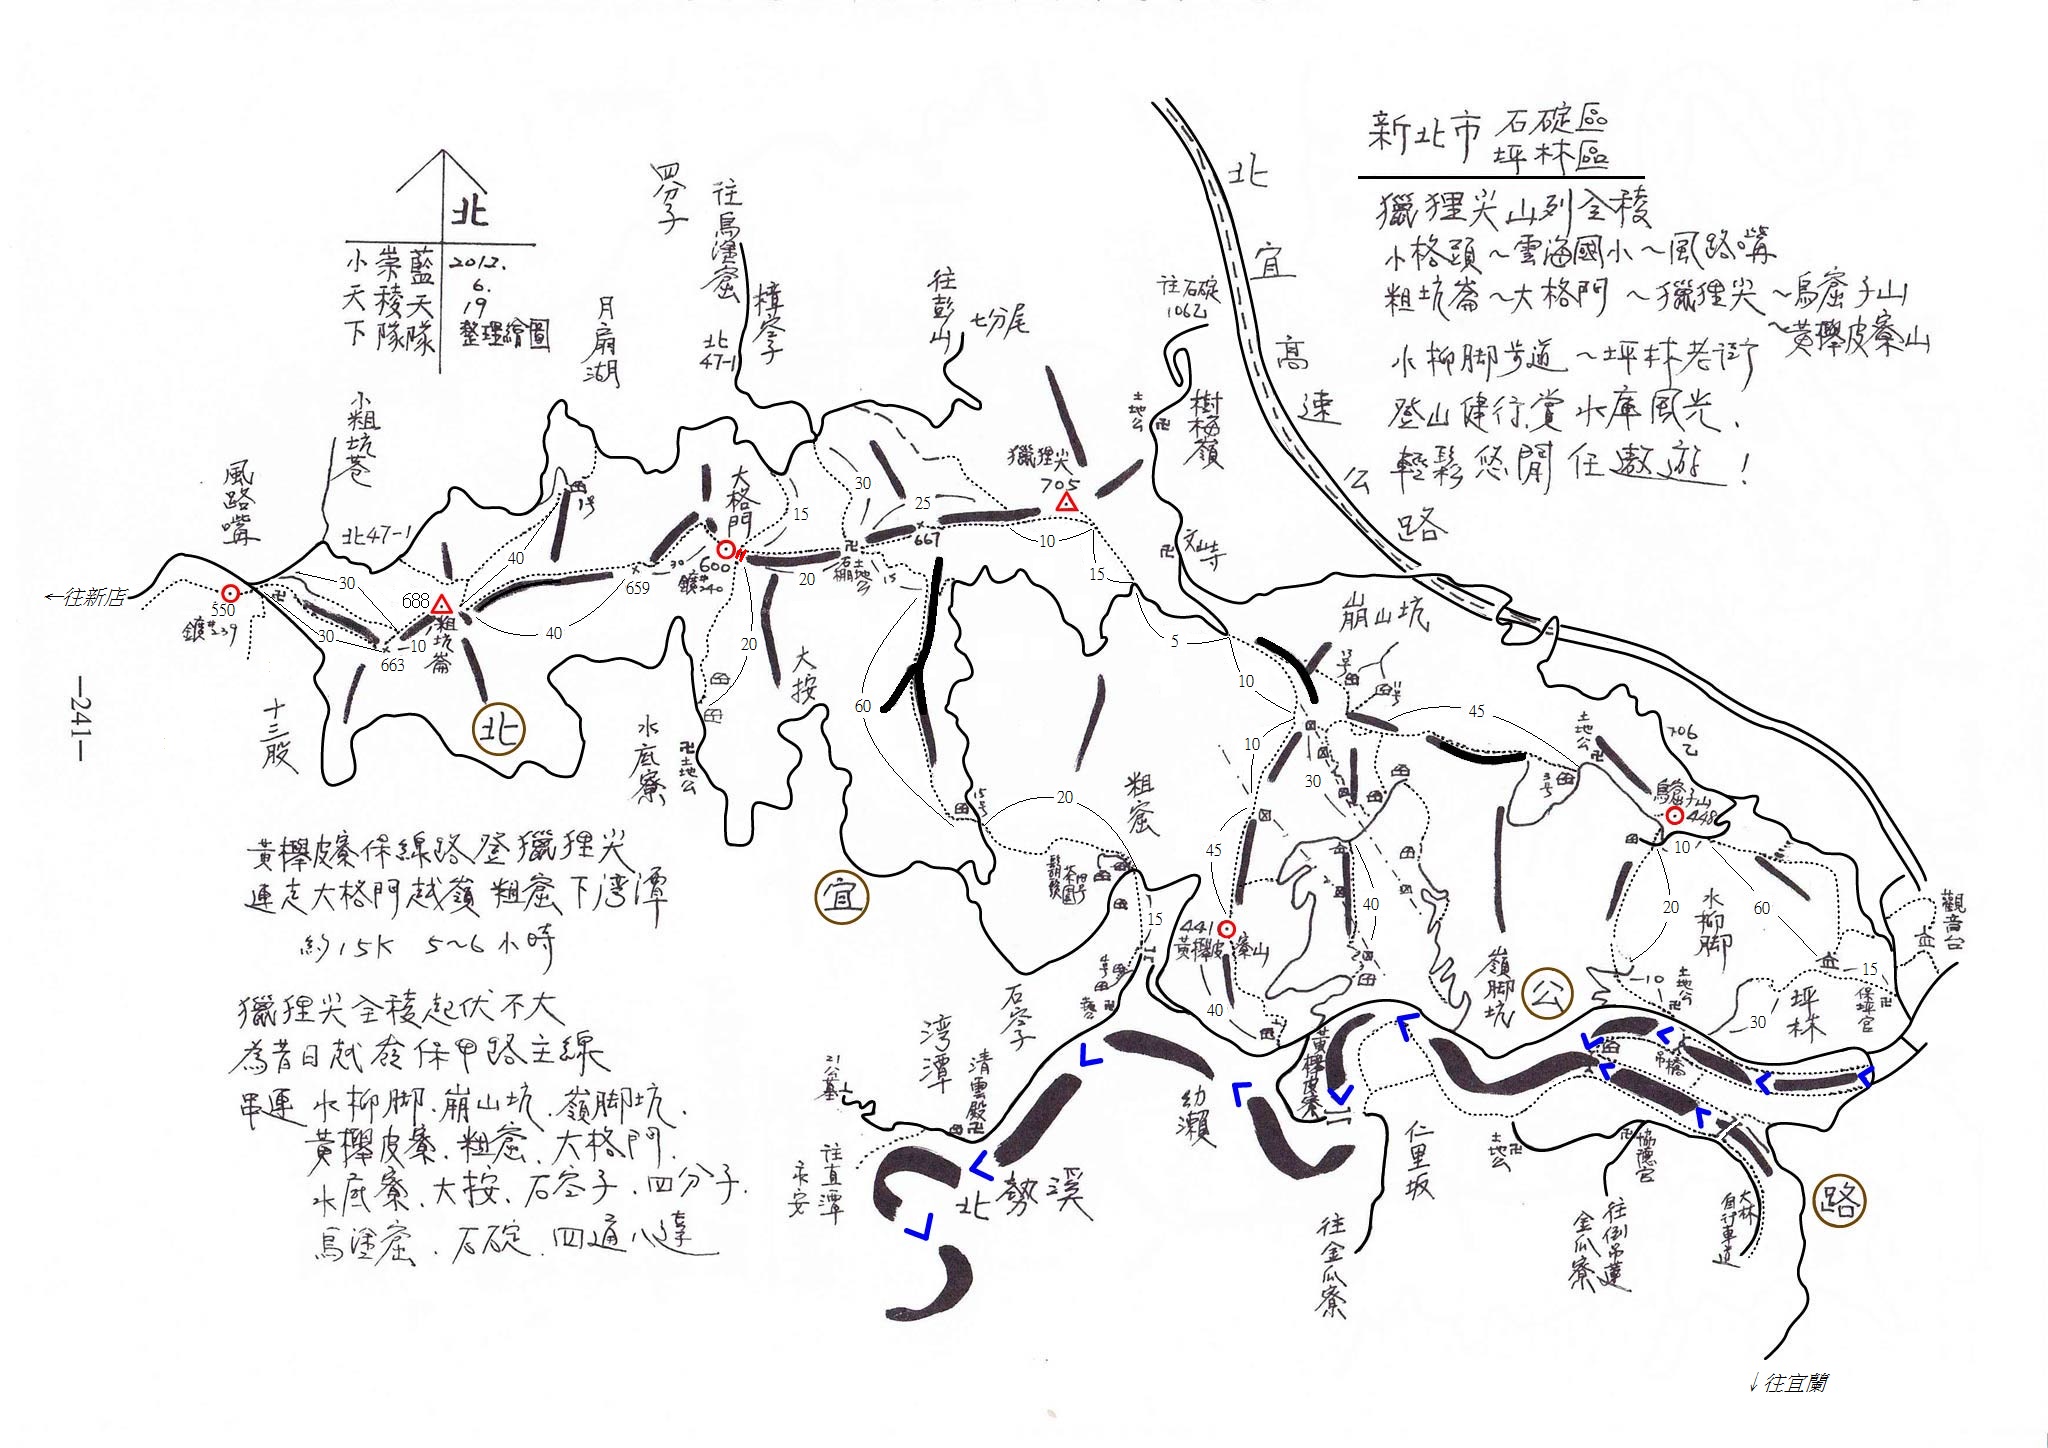 新北市 石碇區
坪林區
獵狸尖山列全稜
小格頭～雲海國小～風路嘴
粗坑崙～大格門～獵狸尖～烏窟子山
～黃櫸皮寮山
水柳脚步道～坪林老街
登山健行,賞水庫風光、
輕鬆悠閒任遨遊！
北
小天下 崇稜隊 藍天隊
2012.
6.
19
整理繪圖
四分子
往烏塗窟
北
47-1
樟空子
月扇湖
往彭山
七分尾
往石碇
106乙
土地公
樹梅嶺
文山寺
北宜高速公路
小粗坑巷
風路嘴
北47-1
←往新店
550
鑛#239
30
30
663
10
688
粗坑崙
40
40
1号
659
30
大格門
600
鑛#240
15
20
20
石棚土地公
30
25
667
15
獵狸尖
705
10
15
5
10
10
60
崩山坑
45
30
十三股
北
水底寮
土地公
大按
宜
粗窟
15号
20
15
45
441
黃櫸皮寮山
40
40
3号
土地公
706乙
烏窟子山
448
10
20
水柳脚
60
觀音台
15
保坪宮
坪林
30
10
土地公
嶺脚坑
公
石空子
湾潭
清雲殿
21公墓
往直潭
永安
北勢溪
幼瀨
黃櫸皮寮
仁里坂
吊橋
土地公
協德宮
往金瓜寮
往倒吊蓮
金瓜寮
大林
自行車道
路
↓往宜蘭
—241—
黃櫸皮寮保線路登獵狸尖
連走大格門越嶺粗窟下湾潭
約15K 5~6小時
獵狸尖全稜起伏不大
為昔日越嶺保甲路主線
串連水柳脚、崩山坑、嶺脚坑、
黃櫸皮寮、粗窟、大格門、
水底寮、大按、石空子、四分子、
烏塗窟、石碇、四通八達